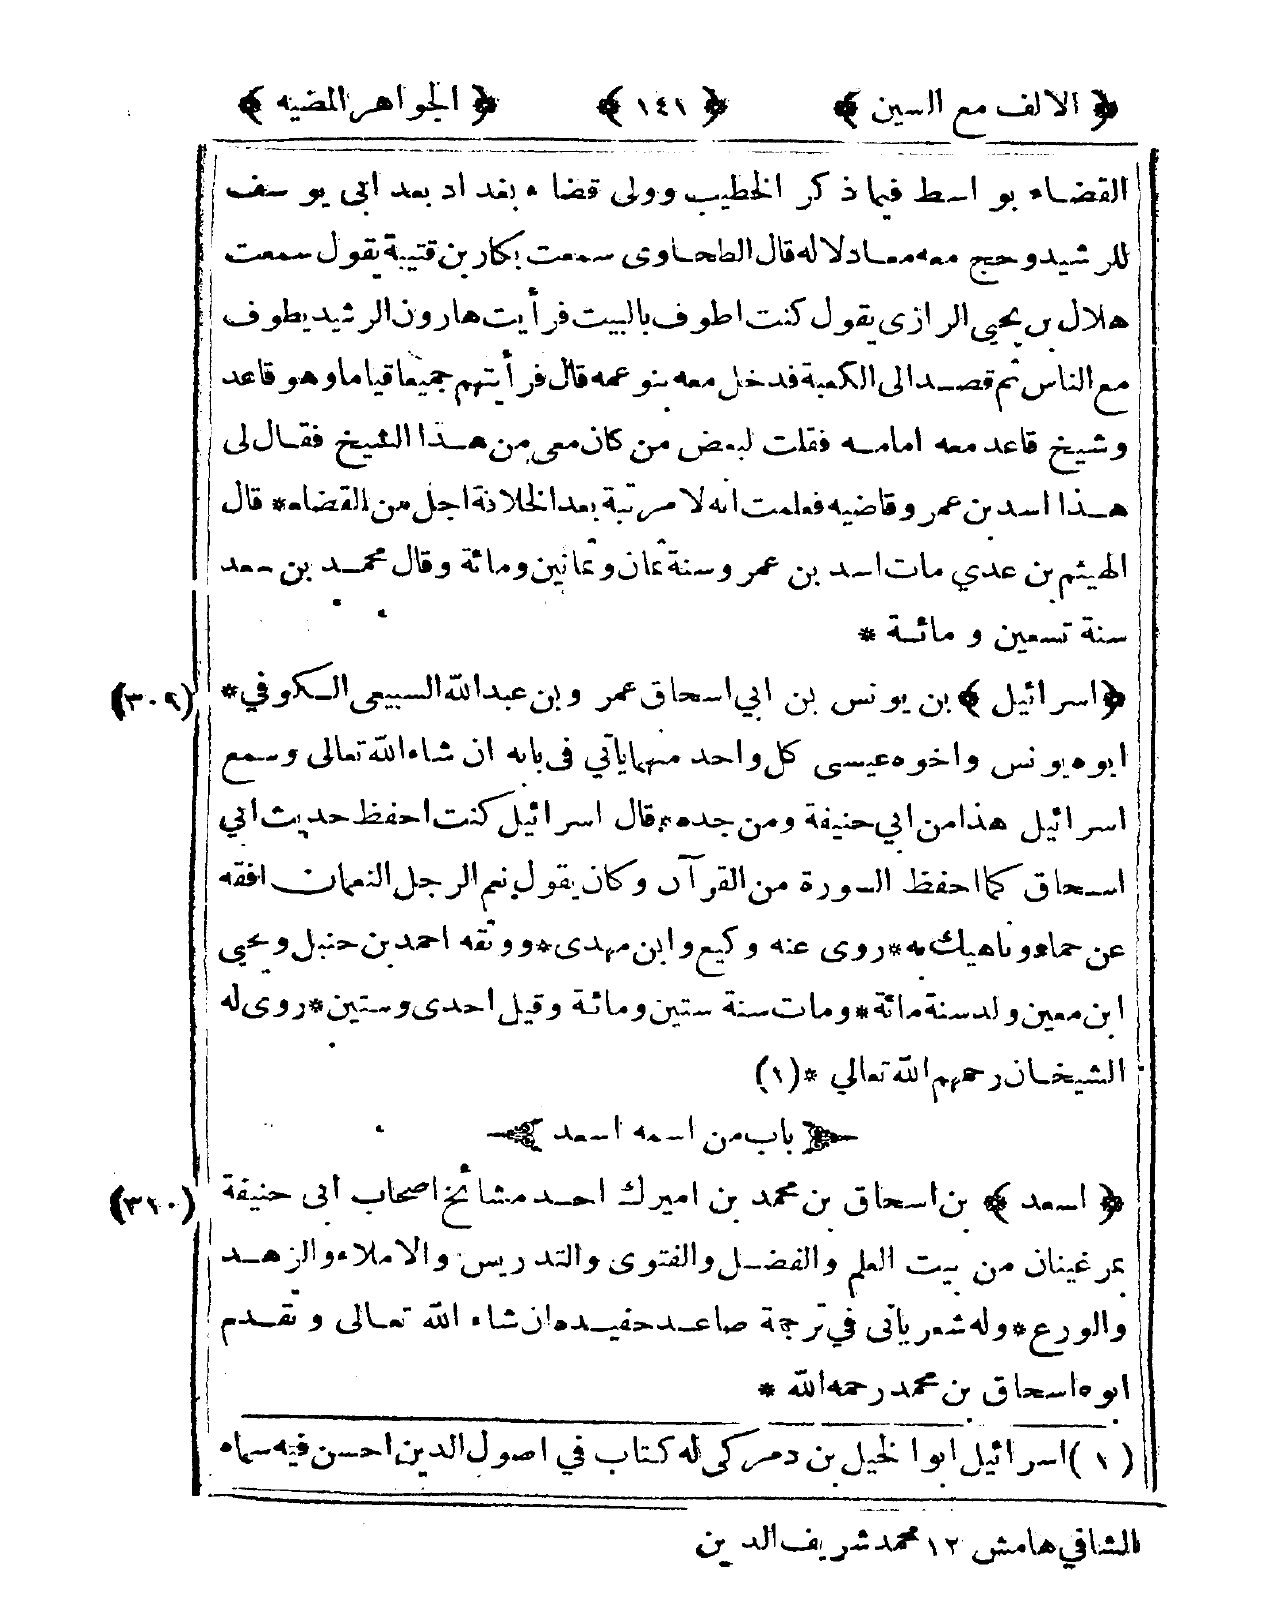 ﴿ الالف مع السين ﴾ ﴿ ١٤١ ﴾ ﴿ الجواهر المضيه ﴾
القضاء بواسط فيما ذكر الخطيب وولى قضاء بغداد بعد ابى يوسف
للرشيد وحج معه معادلا له قال الطحاوى سمعت بكار بن قتيبة يقول سمعت
هلال بن يحيى الرازى يقول كنت اطوف بالبيت فرأيت هارون الرشيد يطوف
مع الناس ثم قصد الى الكعبة فدخل معه بنو عمه قال فرأيتهم جميعا قياما وهو قاعد
وشيخ قاعد معه امامه فقلت لبعض من كان معى من هذا الشيخ فقال لى
هذا اسد بن عمر وقاضيه فعلمت انه لا مرتبة بعد الخلافة اجل من القضاء * قال
الهيثم بن عدي مات اسد بن عمر وسنة ثمان وثمانين ومائة وقال محمد بن سعد
سنة تسعين و مائة *
﴿ اسرائيل ﴾ بن يونس بن ابي اسحاق عمر وبن عبد الله السبيعى الكوفي * (٣٠٩)
ابوه يونس واخوه عيسى كل واحد منهما يأتي فى بابه ان شاء الله تعالى وسمع
اسرائيل هذا من ابي حنيفة ومن جده * قال اسرائيل كنت احفظ حديث ابي
اسحاق كما احفظ السورة من القرآن وكان يقول نعم الرجل النعمان افقه
عن حماد وناهيك به * روى عنه وكيع وابن مهدى * ووثقه احمد بن حنبل ويحيى
ابن معين ولد سنة مائة * ومات سنة ستين ومائة وقيل احدى وستين * روى له
الشيخان رحمهم الله تعالي * (١)
باب من اسمه اسعد
﴿ اسعد ﴾ بن اسحاق بن محمد بن اميرك احد مشائخ اصحاب ابى حنيفة (٣١٠)
بمرغينان من بيت العلم والفضل والفتوى والتدريس والاملاء والزهد
والورع * وله شعر يأتى في ترجمة صاعد حفيده ان شاء الله تعالى وتقدم
ابوه اسحاق بن محمد رحمه الله *
(١) اسرائيل ابوا لخيل بن دمركى له كتاب في اصول الدين احسن فيه سماه
الشافي هامش ١٢ محمد شريف الدين